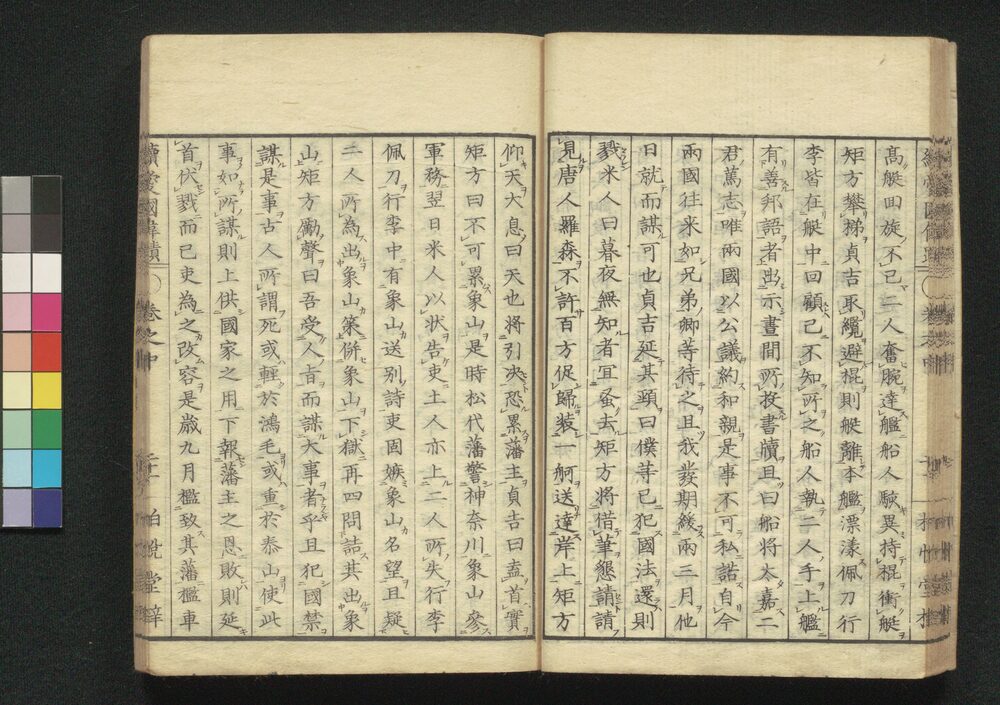 髙艇回旋不已二人奮腕達艦船人駭異持棍衝艇
矩方攀梯貞吉取纜避棍則艇離本艦漂漾佩刀行
李皆在艇中回顧已不知所之船人執二人手上艦
有善邦語者出示晝間所投書牘且曰船將太嘉二
君篤志唯兩國以公議約和親是事不可私諾自今
兩國往来如兄弟卿等待之且我發期緩兩三月他
日就而謀可也貞吉延其頸曰僕等已犯國法還則
戮米人曰暮夜無知者宜蚤去矩方將借筆懇請請
見唐人羅森不許百方促歸装一舸送達岸上矩方
仰天大息曰天也将引決恐累藩主貞吉曰盍首實
矩方曰不可累象山是時松代藩警神奈川象山參
軍務翌日米人以状告吏土人亦上二人所失行李
佩刀行李中有象山送别詩吏固嫉象山名望且疑
二人所為出象山策併象山下獄再四問詰其出象
山矩方勵聲曰吾受人旨而謀大事者乎且犯國禁
謀是事古人所謂死或輕於鴻毛或重於泰山使此
事如所謀則上供國家之用下報藩主之恩敗則延
首伏戮而已吏為之改容是歳九月檻致其藩檻車
續愛國偉績
卷之中